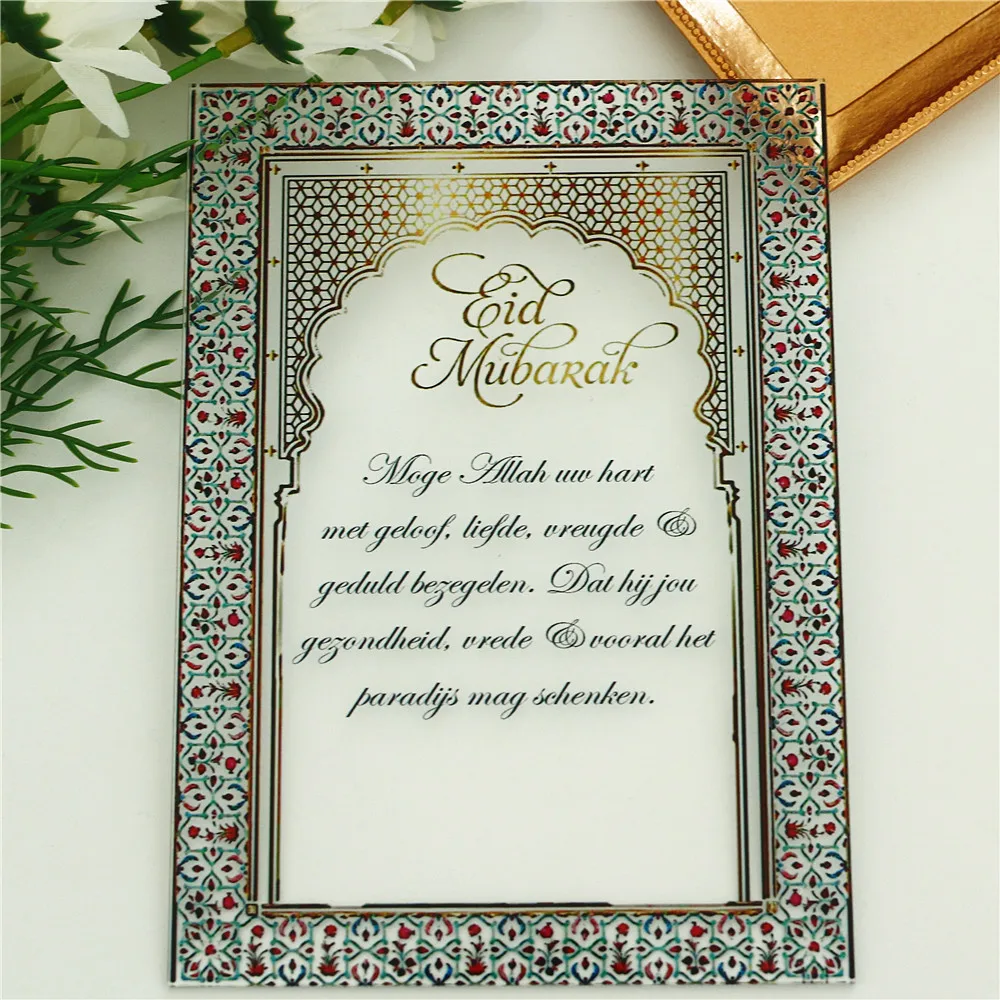 Eid
Mubarak
Moge Allah uw hart
met geloof, liefde, vreugde &
geduld bezegelen. Dat hij jou
gezondheid, vrede & vooral het
paradijs mag schenken.